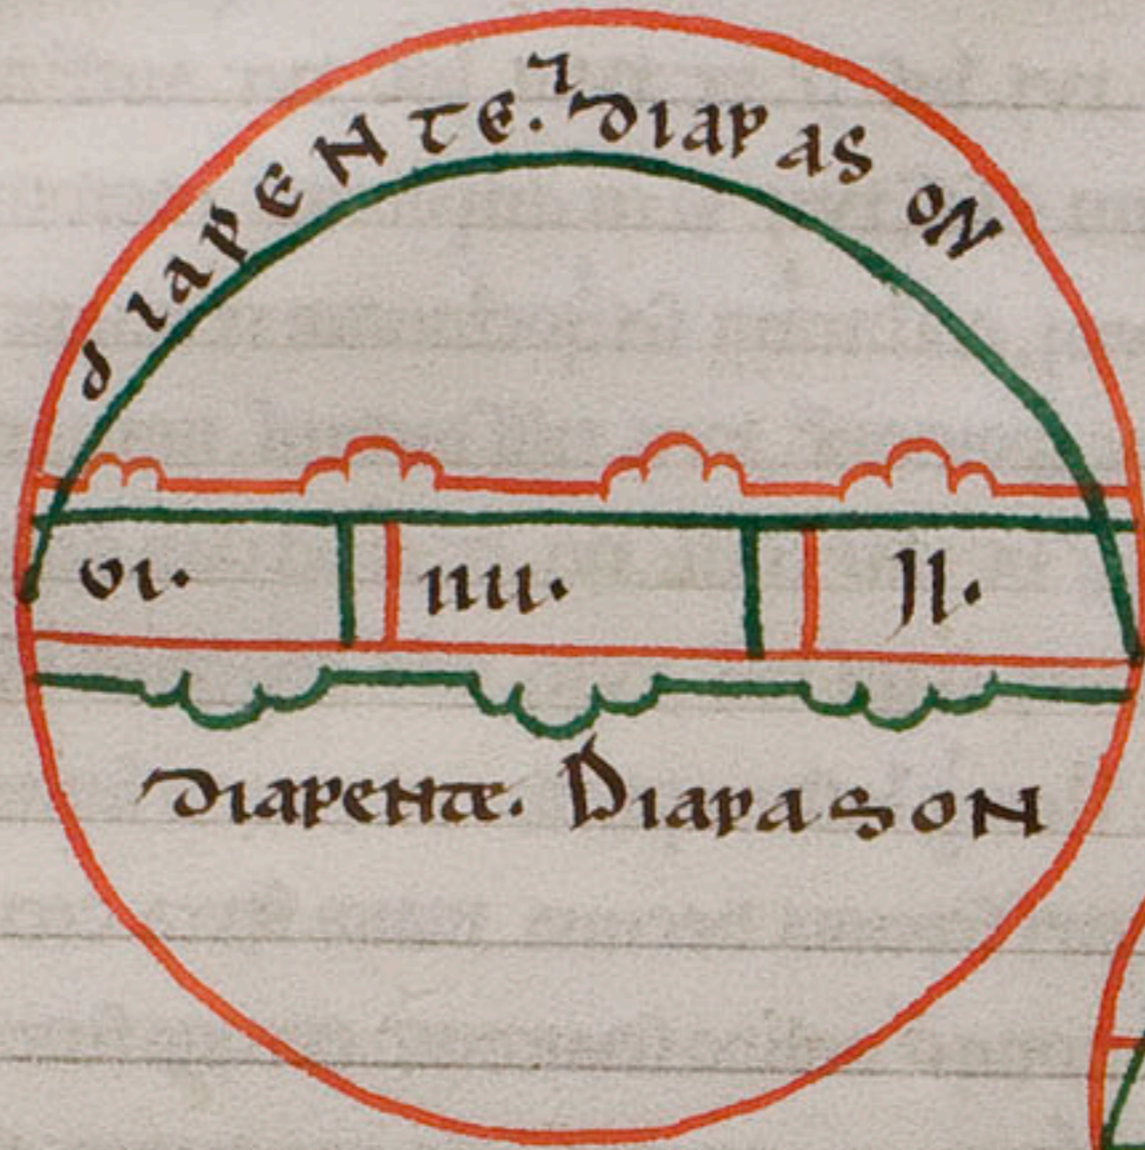 dIAPENTE. ⁊ DIAPASON
VI. IIII. II.
DIAPENTE. DIAPASON